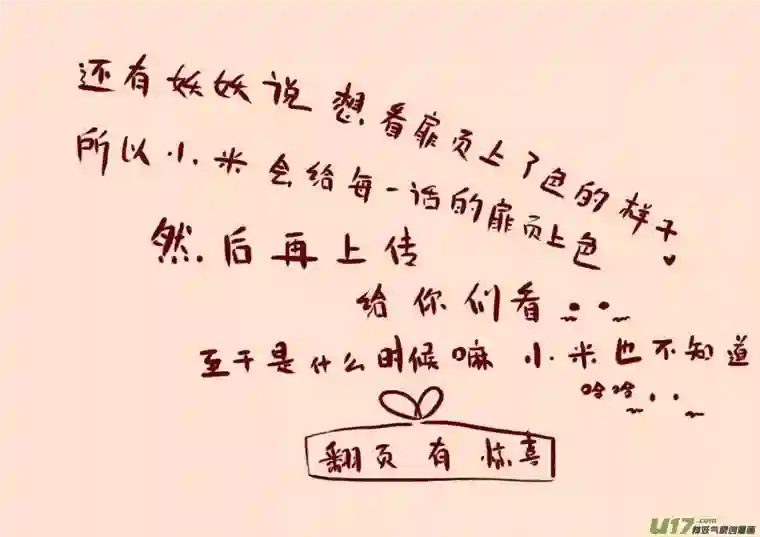 还有妖妖说想看扉页上了色的样子
所以小米会给每一话的扉页上色
然后再上传
给你们看
至于是什么时候嘛 小米也不知道
哈哈
翻页有惊喜
U17.com
有妖气原创漫画